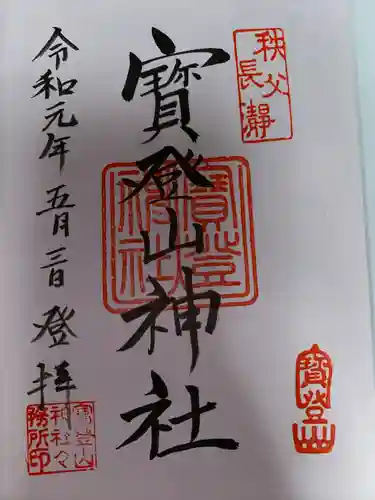 秩父
長瀞
寳登山神社
寳登山
神社
寳登山
令和元年五月三日登拝
寳登山
神社々
務所印